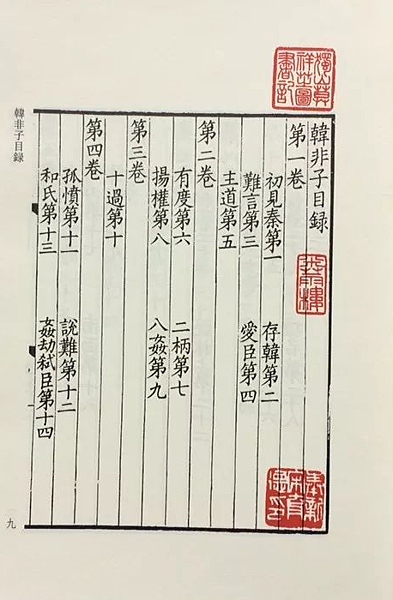 獨山莫
祥芝圖
書記
韓非子目録
第一卷
初見秦第一　存韓第二
難言第三　愛臣第四
主道第五
第二卷
有度第六　二柄第七
揚權第八　八姦第九
第三卷
十過第十
第四卷
孤憤第十一　說難第十二
和氏第十三　姦劫弑臣第十四
奉新
宋育
德印
韓非子目録
九